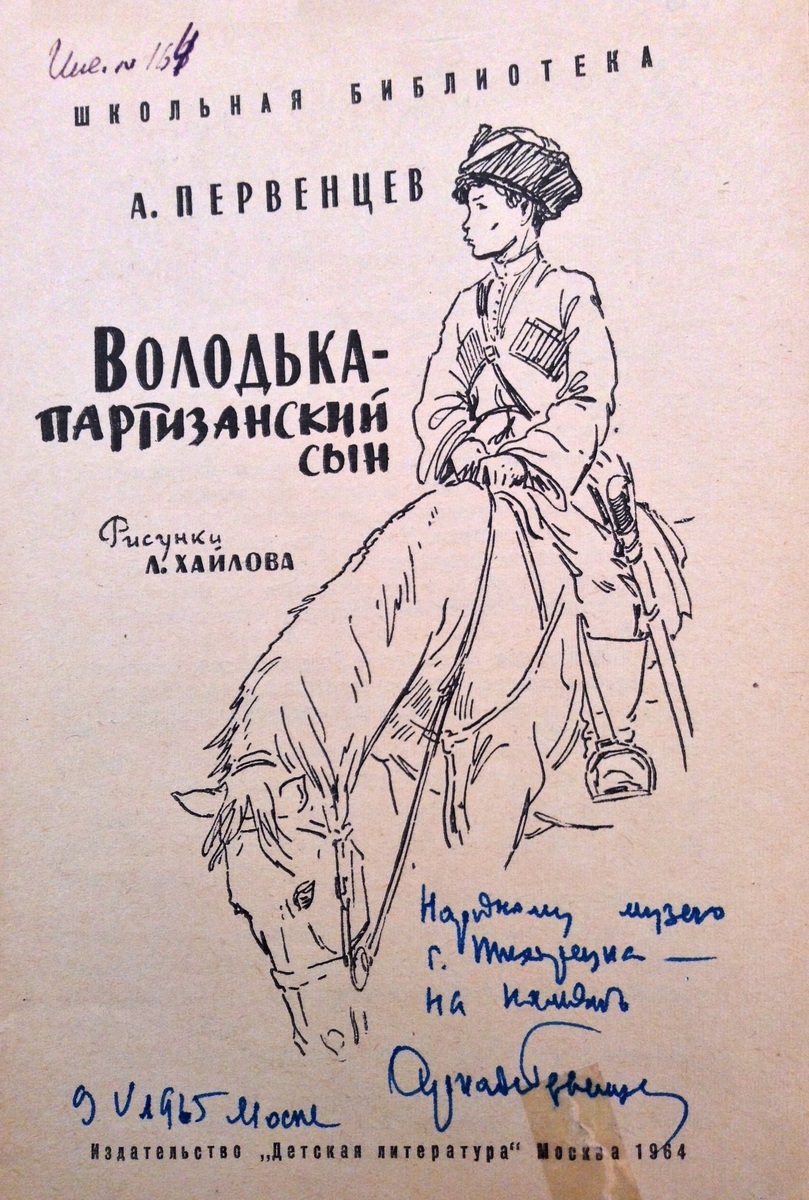 Инв. № 164
ШКОЛЬНАЯ БИБЛИОТЕКА
А. ПЕРВЕНЦЕВ
ВОЛОДЬКА-
ПАРТИЗАНСКИЙ
СЫН
Рисунки
Л. ХАЙЛОВА
Народному музею
г. Тихорецка —
на память
Аркадий Первенцев
9 V 1965 Москва
Издательство „Детская литература“ Москва 1964